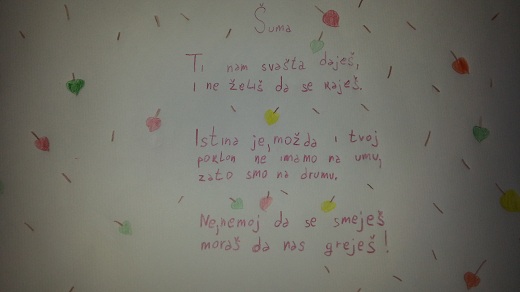 Šuma
Ti nam svašta daješ,
i ne želiš da se kaješ.
Istina je, možda i tvoj
poklon ne imamo na umu,
zato smo na drumu.
Nejnemoj da se smeješ
moraš da nas greješ!